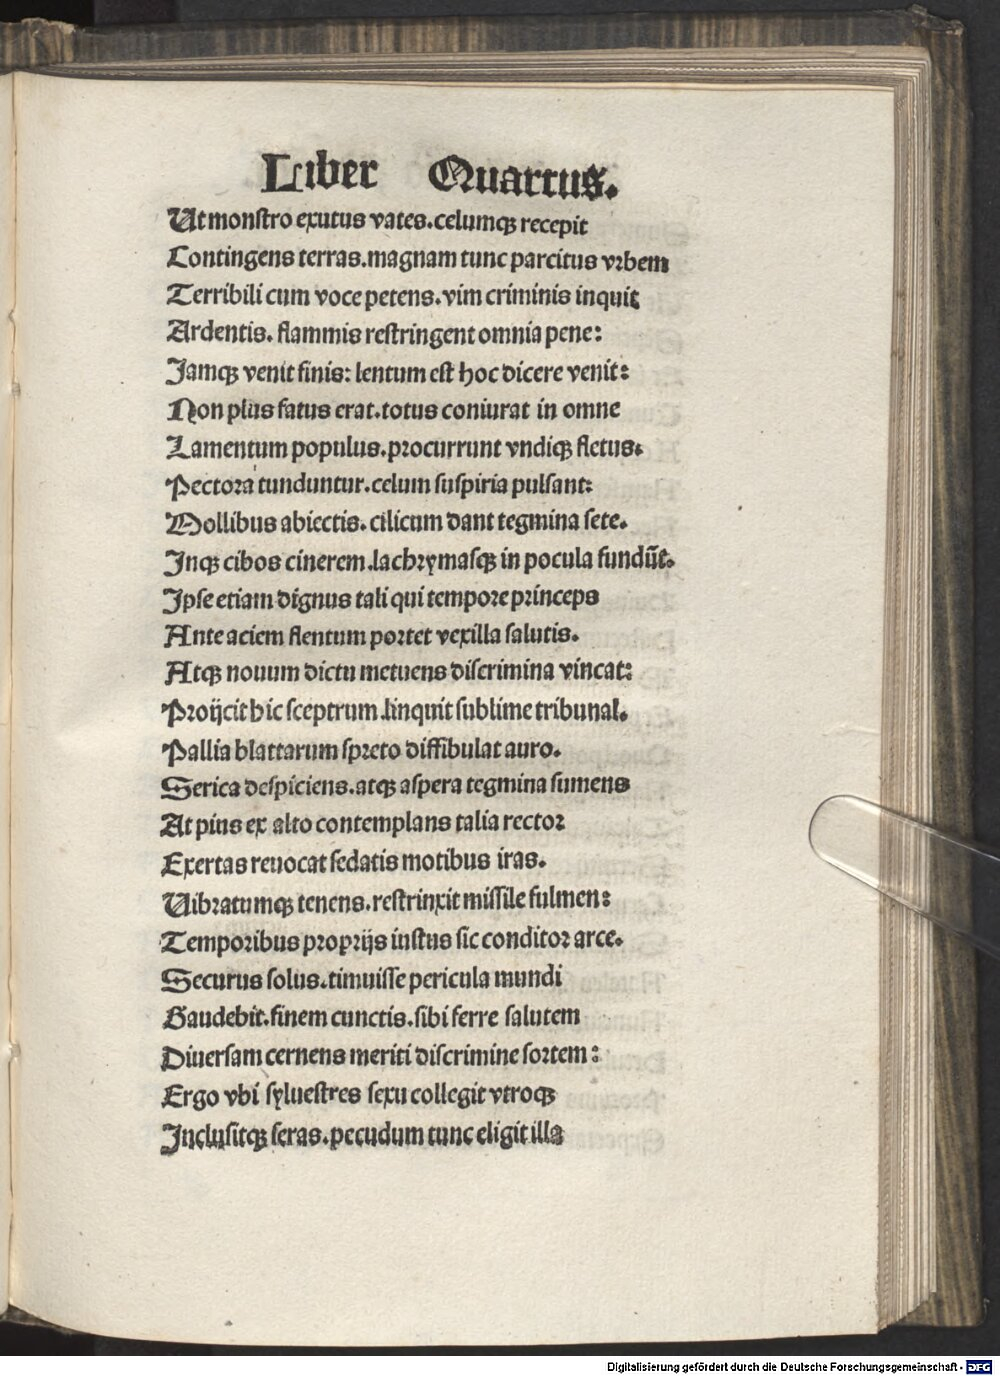 Liber Quartus.
Ut monstro exutus vates.celumqꝫ recepit
Contingens terras.magnam tunc parcitus vrbem
Terribili cum voce petens.vim criminis inquit
Ardentis.flammis restringent omnia pene:
Jamqꝫ venit finis: lentum est hoc dicere venit:
Non plus fatus erat.totus coniurat in omne
Lamentum populus.procurrunt vndiqꝫ fletus.
Pectora tunduntur.celum suspiria pulsant:
Mollibus abiectis.cilicum dant tegmina sete.
Jnqꝫ cibos cinerem.lachrymasqꝫ in pocula fundūt.
Jpse etiam dignus tali qui tempore princeps
Ante aciem flentum portet vexilla salutis.
Atqꝫ nouum dictu metuens discrimina vincat:
Proijcit hic sceptrum.linquit sublime tribunal.
Pallia blattarum spreto diffibulat auro.
Serica despiciens.atqꝫ aspera tegmina sumens
At pius ex alto contemplans talia rector
Exertas reuocat sedatis motibus iras.
Uibratumqꝫ tenens.restrinxit missile fulmen:
Temporibus proprijs iustus sic conditor arce.
Securus solus.timuisse pericula mundi
Gaudebit.finem cunctis.sibi ferre salutem
Diuersam cernens meriti discrimine sortem:
Ergo vbi syluestres sexu collegit vtroqꝫ
Jnclusitqꝫ feras.pecudum tunc eligit illa
Digitalisierung gefördert durch die Deutsche Forschungsgemeinschaft - DFG